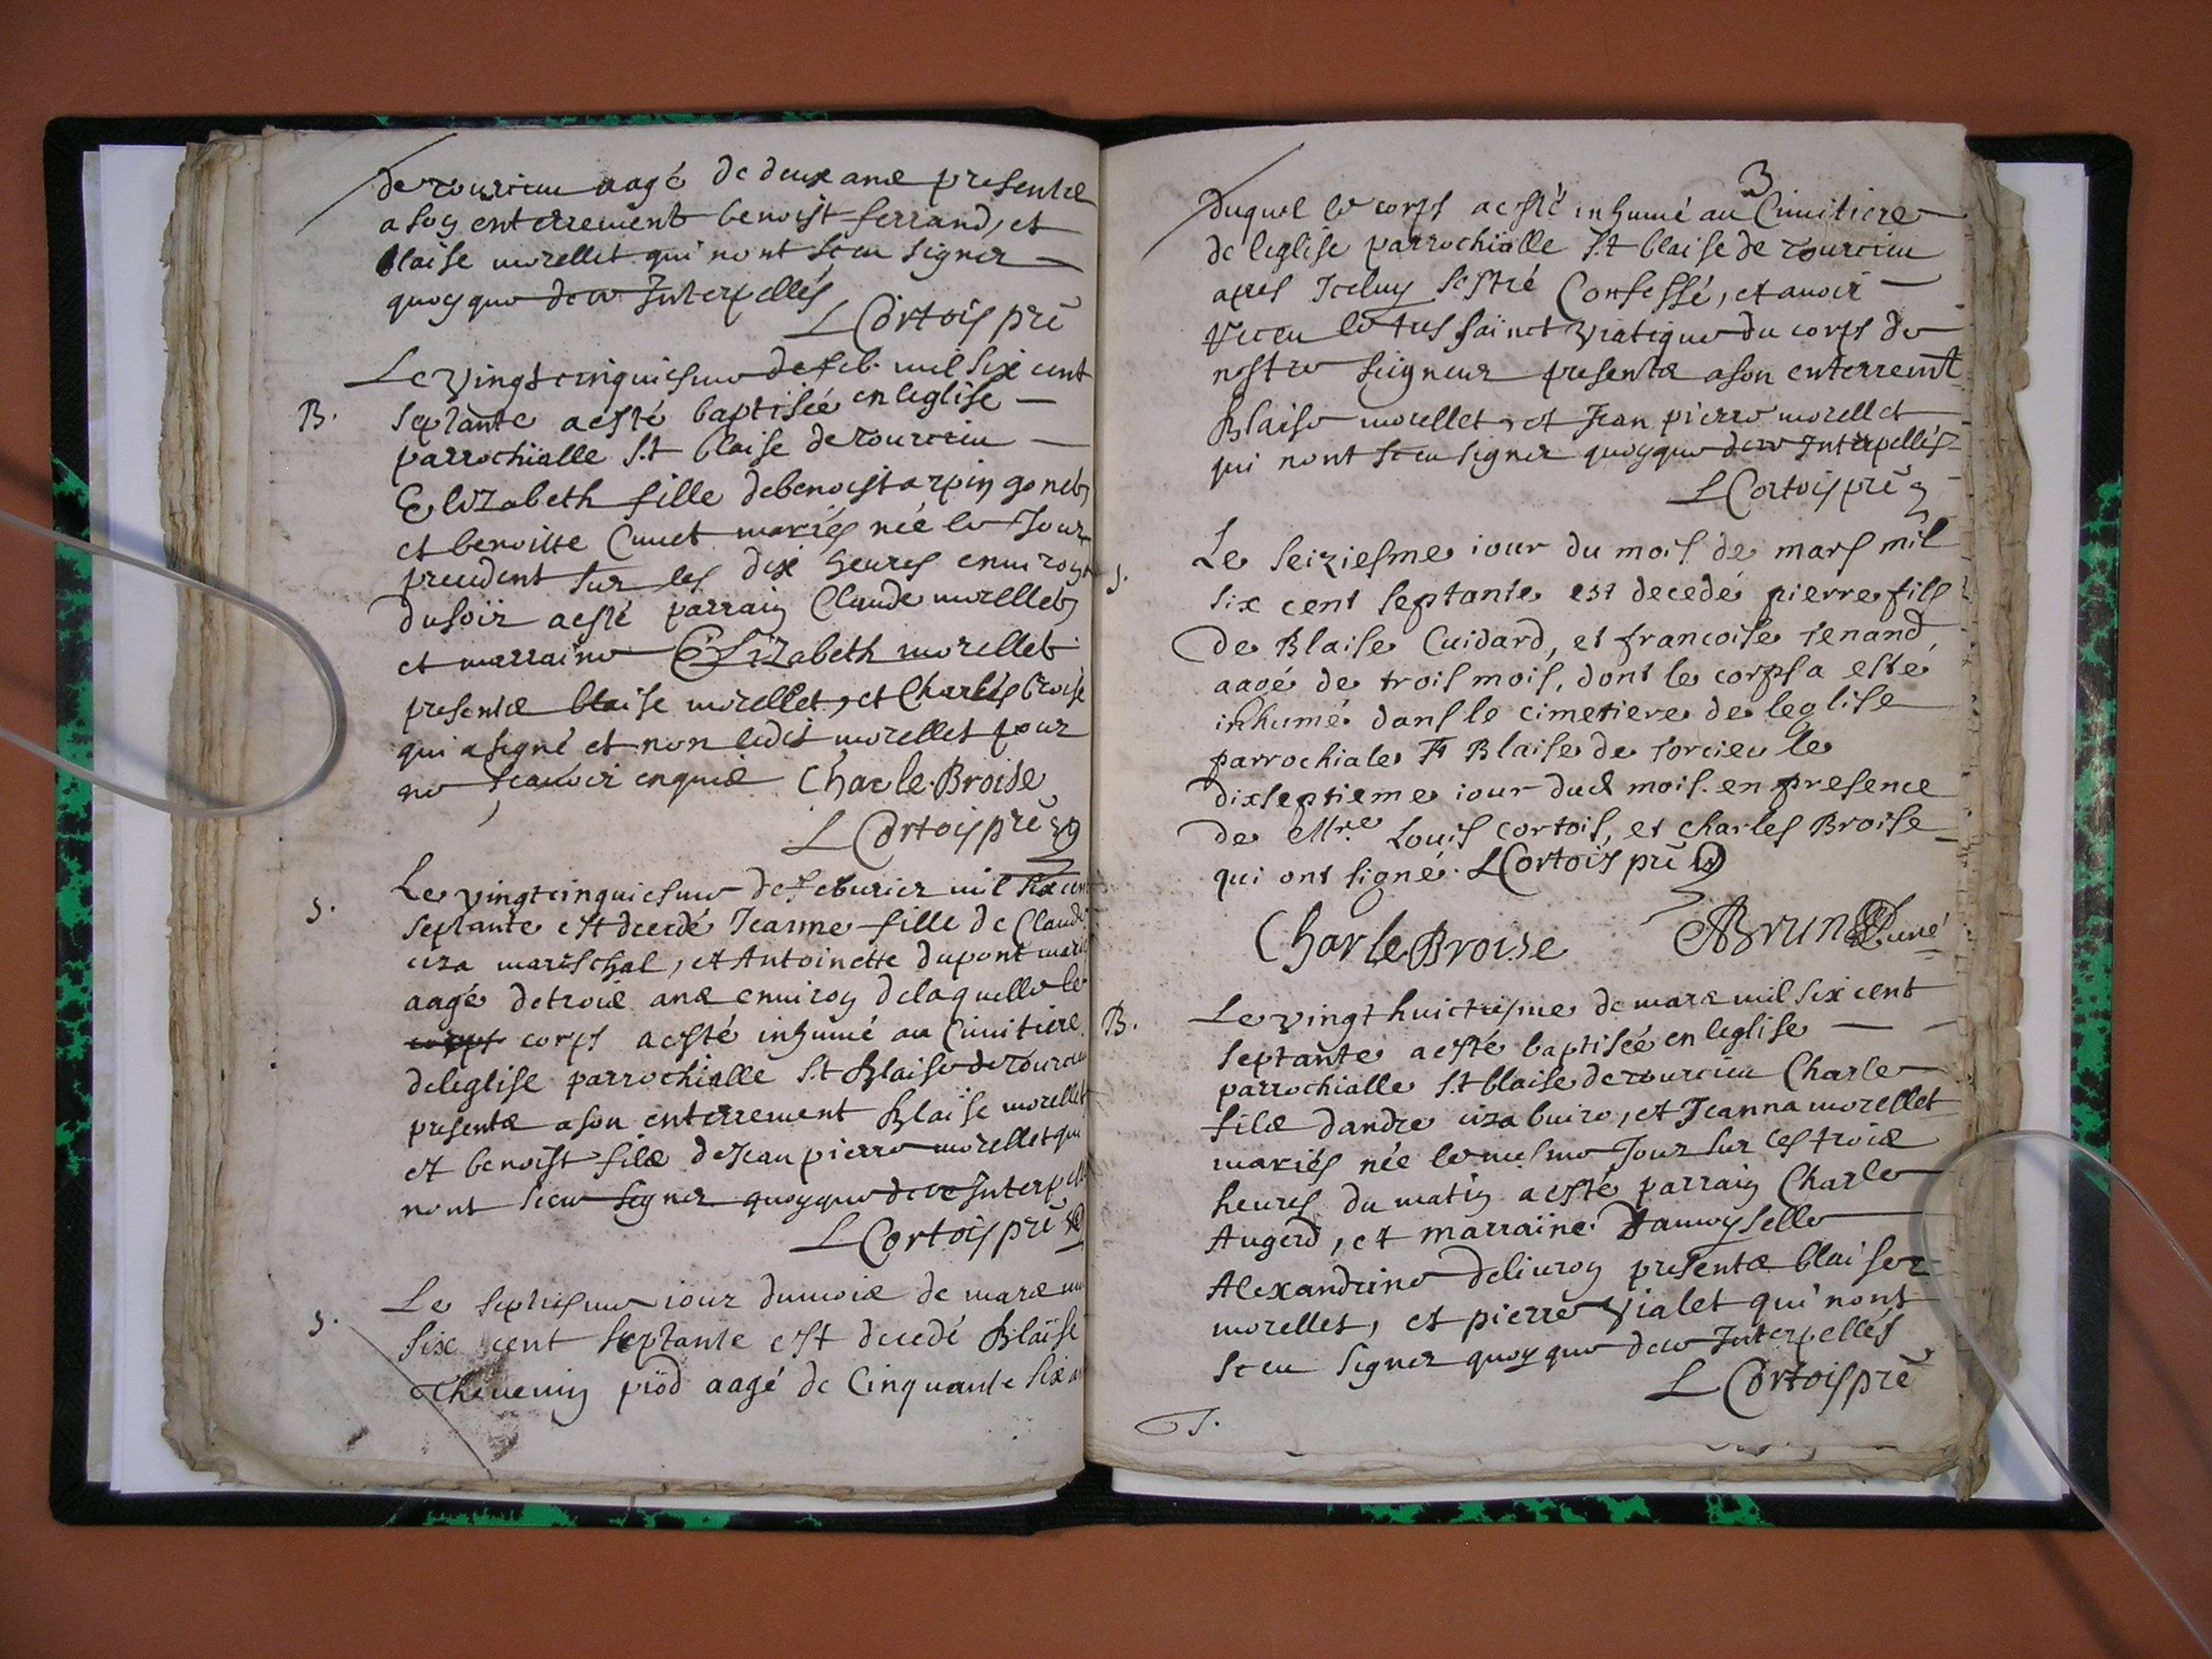 de tourcieu aagé de deux ans presentz
a soy enterrement benoist ferrand, et
blaise morellet qui nont sceu signer
quoyque de ce Interpellés
L Cortois prē
Le vingt cinquiesme de feb. mil six cent
B. septante a esté baptisée en leglise
parrochialle S.t blaise de tourcieu
Elizabeth fille de benoist arpin gonet
et benoitte Cunet mariés née le Jour
precedent sur les dix heures enuiron
du soir a esté parrain Claude morellet
et marraine Elizabeth morellet
presentz blaise morellet, et Charles broise
qui a signé et non ledit morellet pour
ne scauoir enquis Charle Broise
L Cortois prē
S. Le vingt cinquiesme de feburier mil six cent
septante est decedé Jeanne fille de Claude
mareschal, et Antoinette dupont mariés
aagé de trois ans enuiron de laquelle le
corps corps a esté inhumé au Cimitiere
de leglise parrochialle S.t Blaise de Tourcieu
presentz a son enterrement Blaise morellet
et benoist filz de Jean pierre morellet qui
nont sceu signer quoyque de ce Interpellés
L Cortois prē
S. Le septiesme iour du mois de mars mil
six cent septante est decedé Blaise
Theuenin piod aagé de Cinquante six ans
3
duquel le corps a esté inhumé au Cimitiere
de leglise parrochialle S.t blaise de tourcieu
apres Iceluy s'estre Confessé, et auoir
receu le tres sainct viatique du corps de
nostre seigneur presentz a son enterremt
Blaise morellet, et Jean pierre morellet
qui nont sceu signer quoyque de ce Interpellés
L Cortois prē
S. Le seiziesme iour du mois de mars mil
six cent septante est decedé pierre fils
de Blaise Cuidard, et francoise tenand,
aagé de trois mois, dont le corps a esté
inhumé dans le cimetiere de leglise
parrochiale St Blaise de torcieu le
dixseptieme iour dud mois en presence
de Mre Louis cortois, et charles Broise
qui ont signé. L Cortois prē
Charle Broise Brun Curé
B. Le vingt huictiesme de mars mil six cent
septante a esté baptisée en leglise
parrochialle S.t blaise de tourcieu Charle
filz dandre buire, et Jeanna morellet
mariés née le mesme Jour sur les trois
heures du matin a esté parrain Charle
Augerd, et marraine damoyselle
Alexandrine deliuron presentz blaise
morellet, et pierre vialet qui nont
sceu signer quoy que de ce Interpellés
L Cortois prē